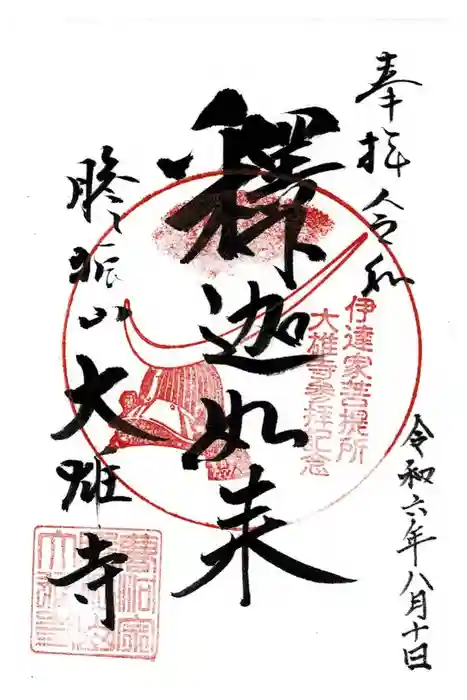 奉拝 令和
令和六年八月十日
釋迦如来
伊達家菩提所
大雄寺参拝記念
大雄寺